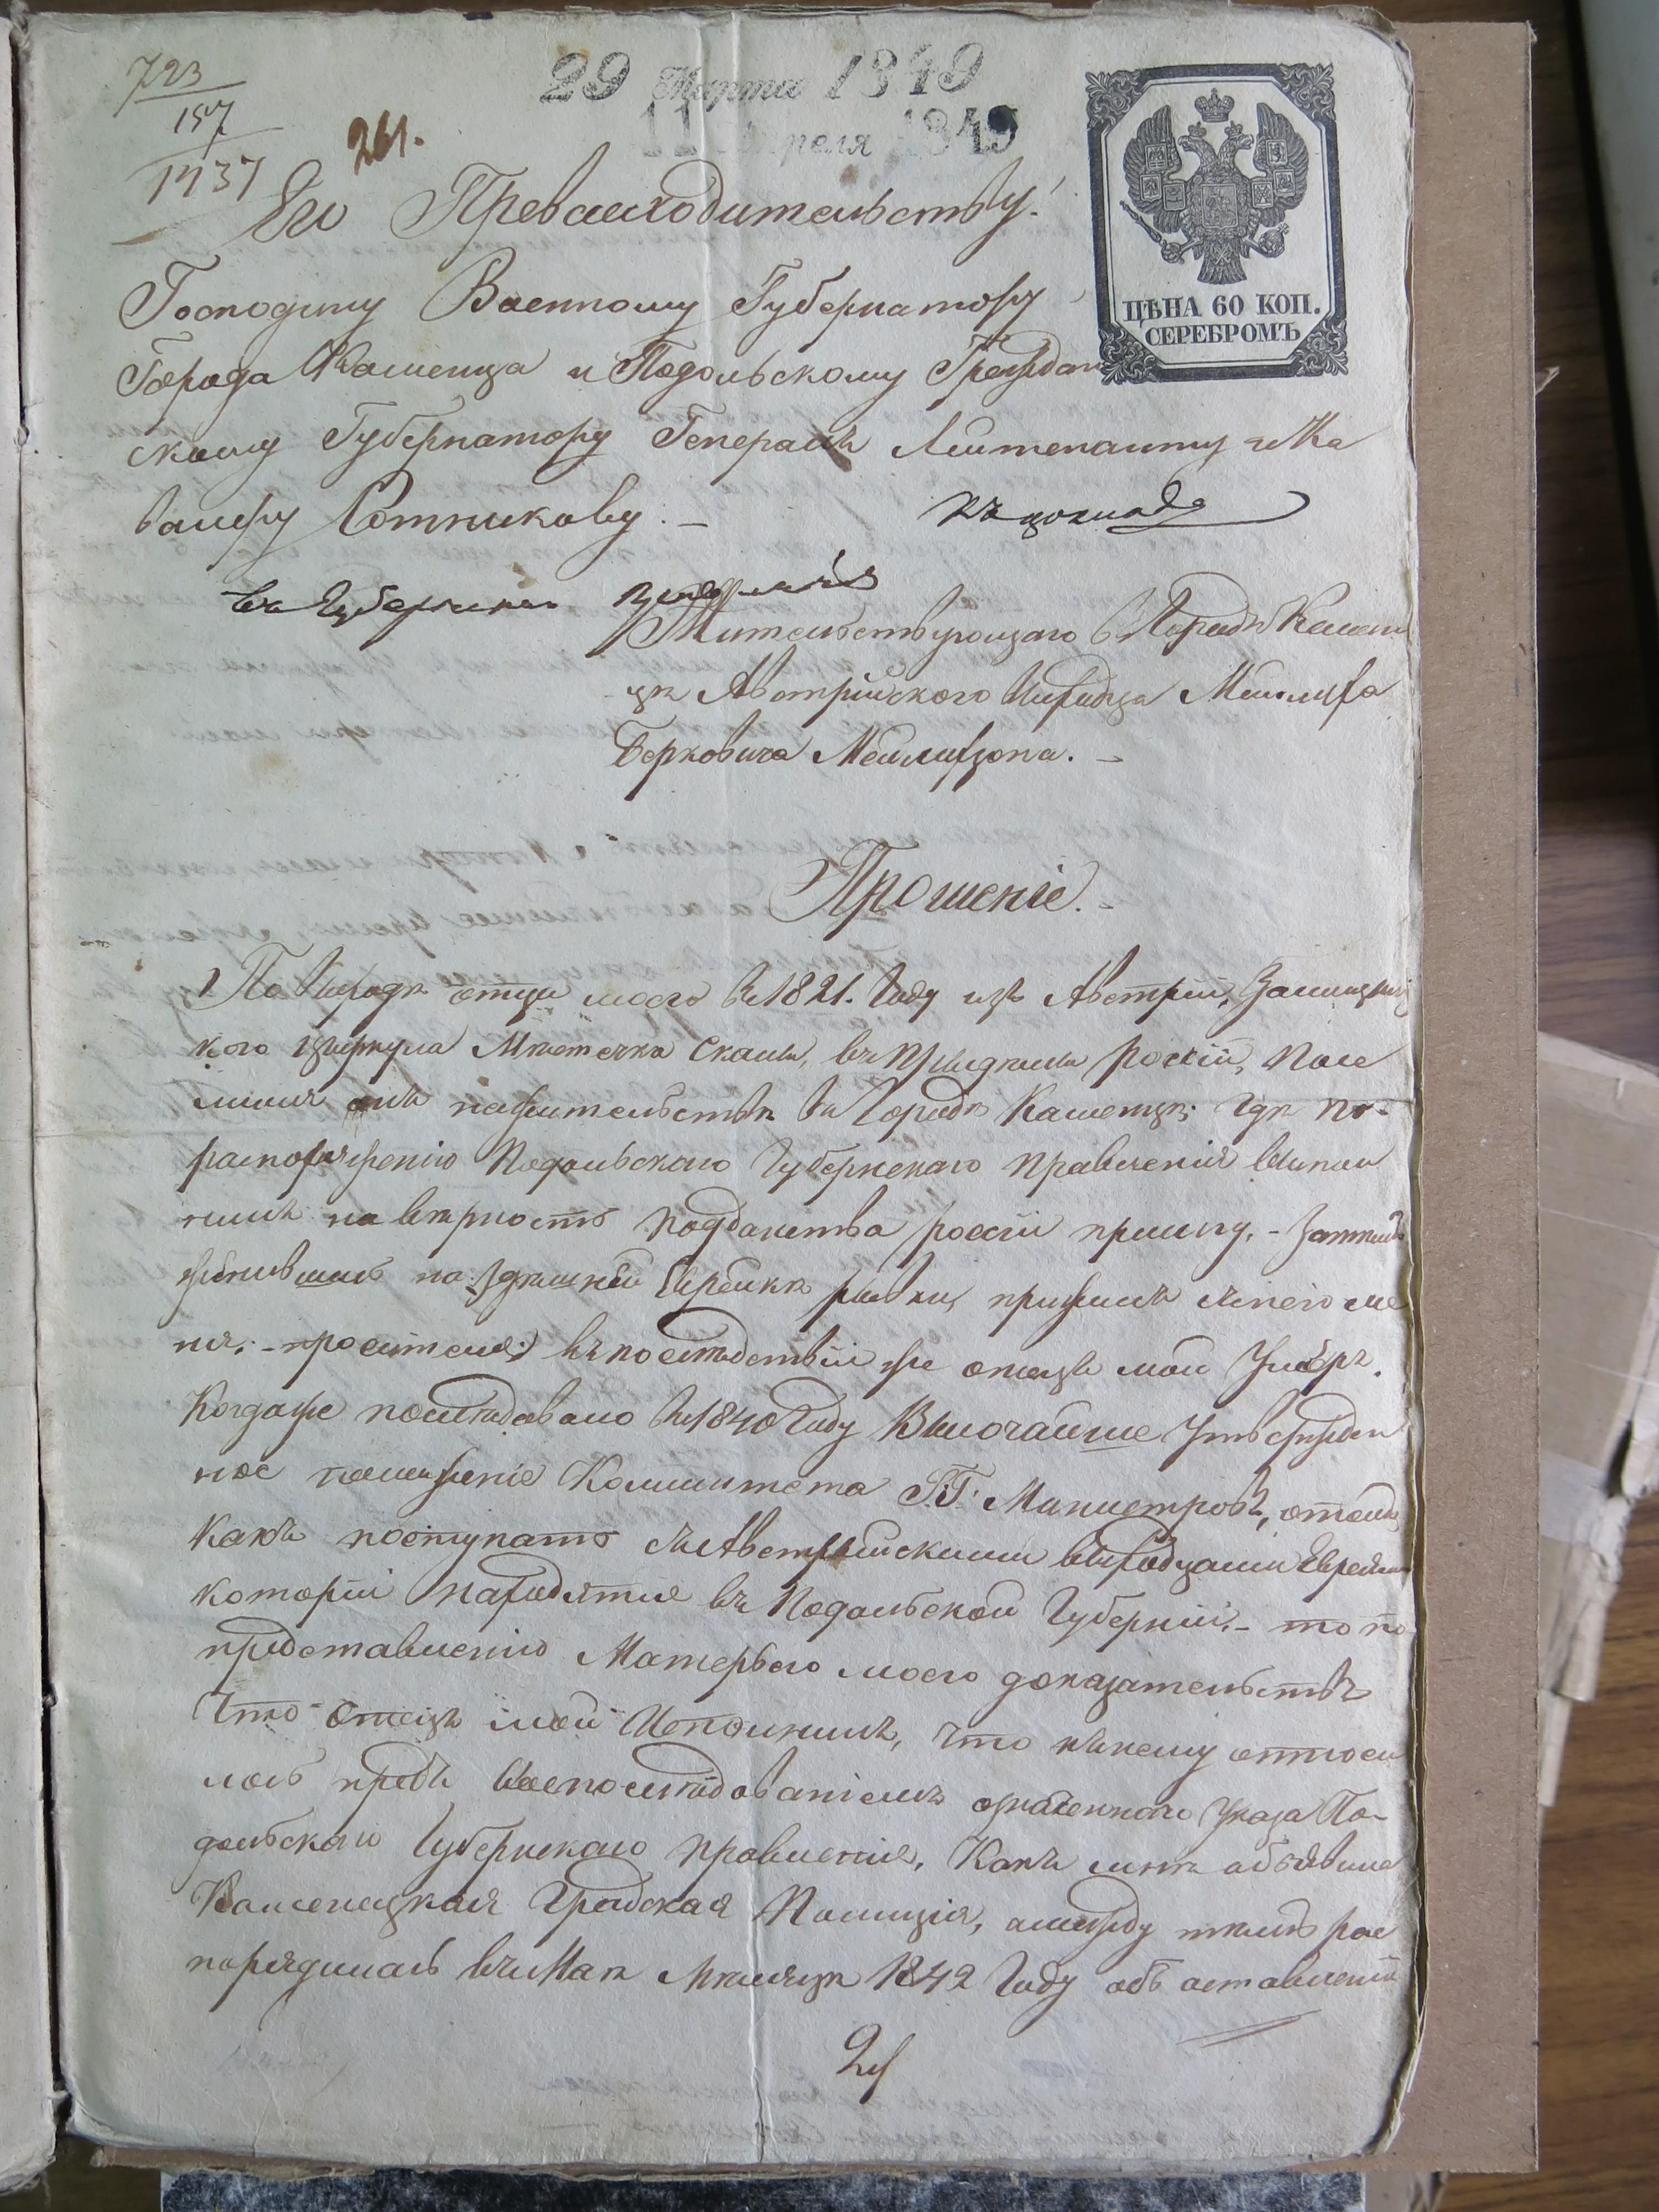 723
157
1737
261.
29 Марта 1849
11 Апреля 1849
ЦѢНА 60 КОП.
СЕРЕБРОМЪ
Его Превосходительству!
Господину Военному Губернатору
Города Каменца и Подольскому Граждан
скому Губернатору Генералъ Лейтенанту и Ка
валеру Сотникову. –
къ докладу
въ Губернское
Жительствующаго в Городѣ Камен
цѣ Австрійского Выходца Мейлиха
Берковича Мейлихзона. –
Прошеніе. –
По выходѣ отца моего въ 1821. Году изъ Австріи,
кого циркула Мѣстечка Скалы, въ предѣлы россіи, посе
лился онъ на жительствѣ въ Городѣ Каменцѣ; гдѣ по-
распоряженію Подольского Губернскаго правленія выпол
нилъ на вѣрность подданства россіи присягу. – Затѣмъ
женившись на здѣшней Еврейкѣ ривки, прижилъ снею ме
ня: – просителя:) въпослѣдствіи же отецъ мой умеръ.
Когдаже последовало въ 1840 Году Высочайше утвержден
ное положеніе Комитета Г.Г. Министровъ, отомъ
какъ поступать съ Австрійскими выходцами Евреями
которіи находятся въ Подольской Губерніи. – то по
представленію Матерью моею доказательствъ
что отецъ мой исполнилъ, что кънему относи
лось предъ воспоследованіемъ означенного указа По-
дольского Губернскаго правленія, Какъ мнѣ объявила
Каменецкая Градская Полиція, амежду тѣмъ рас
порядилась въ Маѣ мѣсяцѣ 1842 Году объ оставленіи